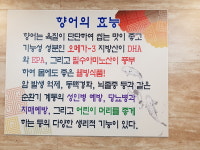 향어의 효능
향어는 육질이 단단하여 씹는 맛이 좋고
기능성 성분인 오메가-3 지방산이 DHA
와 EPA, 그리고 필수아미노산이 풍부
하여 몸에도 좋은 웰빙식품!
암 발생 억제, 동맥경화, 뇌졸중 등과 같은
순환기 계통의 성인병 예방, 당뇨병과
치매예방, 그리고 어린이 머리를 좋게
하는 등의 다양한 생리적 기능이 있다.